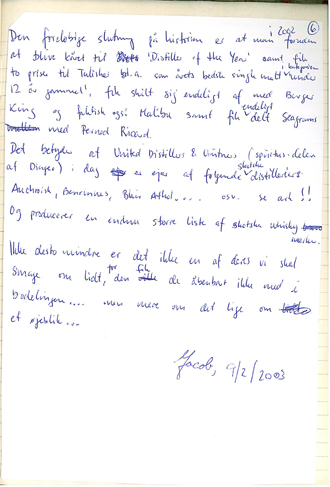 i 2002 6
Den foreløbige slutning på historien er at man foruden
at blive kåret til 'Distiller of the Year' samt fik
to priser til Talisker bl.a. som årets bedste single malt under i kategorien
12 år gammel', fik skilt sig endeligt af med Burger
King og faktisk også Malibu samt fik endeligt delt Seagrams
med Pernod Ricard.
Det betyder at United Distillers & Vintners (spiritus-delen
af Diageo) i dag er ejer af følgende skotske distillerier:
Auchroisk, Benrinnes, Blair Athol.... osv. se ark!!
Og producerer en endnu større liste af skotske whisky
mærker.
Ikke desto mindre er det ikke en af deres vi skal
smage om lidt, for den fik de åbenbart ikke med i
bodelingen.... men mere om det lige om
et øjeblik...
Jacob, 9/2/2003